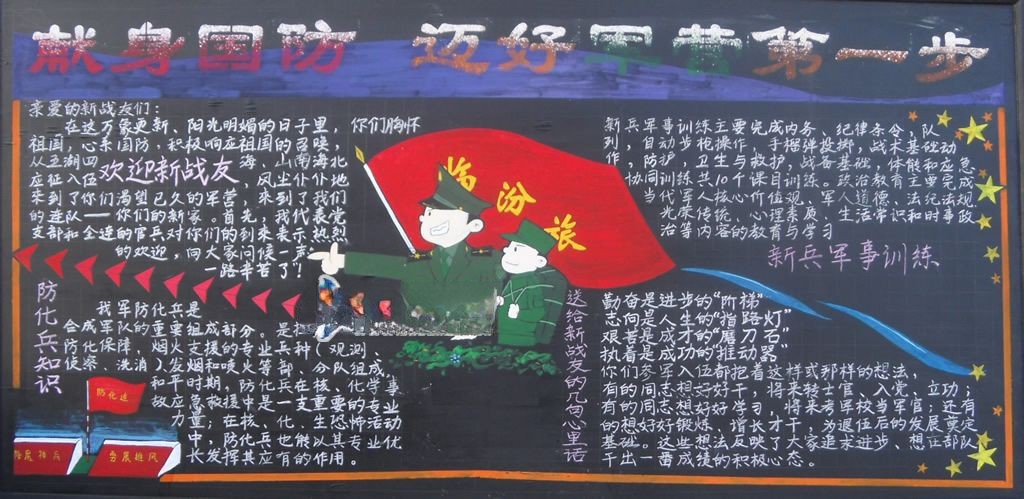 献身国防 迈好军营第一步
亲爱的新战友们:
在这万象更新、阳光明媚的日子里,你们胸怀
祖国,心系国防,积极响应祖国的召唤,
从五湖四海、山南海北
欢迎新战友
应征入伍,风尘仆仆地
来到了你们渴望已久的军营,来到了我们
的连队——你们的新家。首先,我代表党
支部和全连的官兵对你们的到来表示热烈
的欢迎,向大家问候一声
一路辛苦了!
防化兵知识
我军防化兵是
合成军队的重要组成部分。是
防化保障、烟火支援的专业兵种(观测、
侦察、洗消)、发烟和喷火等部、分队组成。
和平时期,防化兵是核、化学事
故应急救援中一支重要的专业
力量;在核、化、生恐怖活动
中,防化兵也能以其专业优
长发挥其应有的作用。
防化连
务展雄风
临汾旅
新兵军事训练主要完成内务、纪律条令、队
列,自动步枪操作与手榴弹投掷,战术基础动
作,防护、卫生与救护,战备基础,体能和应急
协同训练共10个课目训练。政治教育主要完成
当代军人核心价值观、军人道德、法纪法规
光荣传统、心理素质、生活常识和时事政
治等内容的教育与学习
新兵军事训练
送给新战友的几句心里话
勤奋是进步的“阶梯”
志向是人生的“指路灯”
艰苦是成才的“磨刀石”
执着是成功的“推动器”
你们参军入伍都抱着这样或那样的想法,
有的同志想好好干,将来转士官、入党、立功;
有的同志想好好学习,将来考军校当军官;还有
的想好好锻炼、成长,为退伍后的发展奠定
基础。这些想法反映了大家追求进步、在部队
干出一番成绩的积极心态。